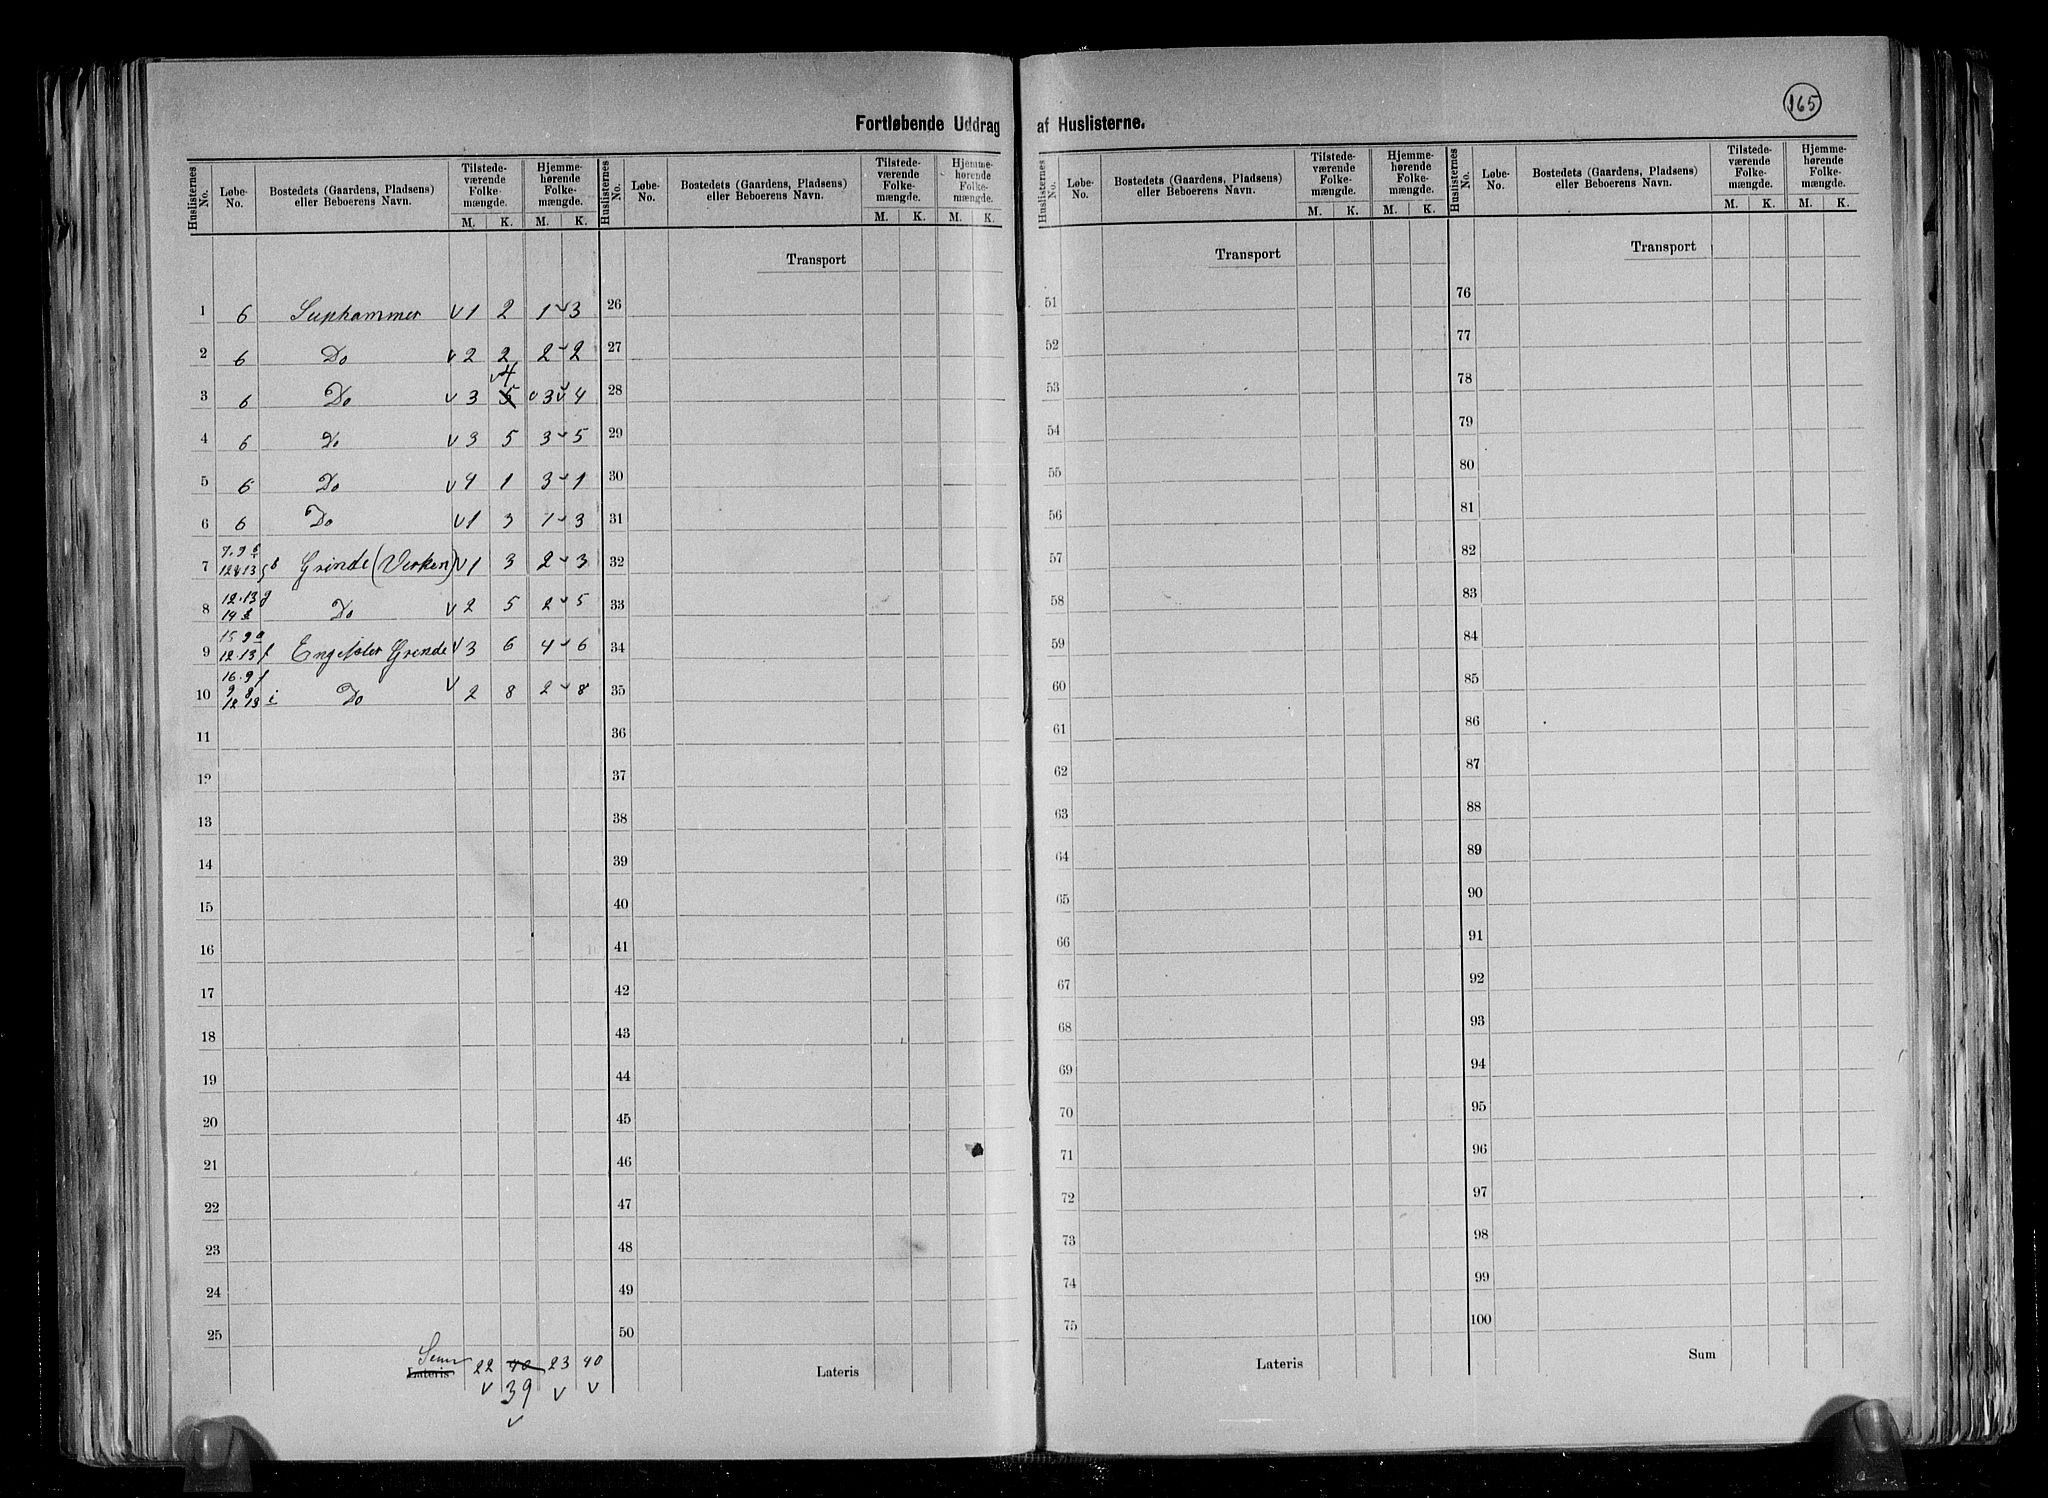 165
Fortløbende Uddrag af Huslisterne.
Huslisternes No. Løbe-No. Bostedets (Gaardens, Pladsens) eller Beboerens Navn. Tilstede-værende Folke-mængde. M. K. Hjemme-hørende Folke-mængde. M. K.
1 6 Suphammer v 1 2 1 v 3
2 6 Do v 2 2 2 v 2
3 6 Do v 3 5 v4 v 3 v 4
4 6 Do v 3 5 3 v 5
5 6 Do v 4 1 3 v 1
6 6 Do v 1 3 1 v 3
7 7. 9 12 & 13 b Grinde (Verken) v 1 3 2 v 3
8 12.13 g 14 Do v 2 5 2 v 5
9 15 9 a 12.13 f Grinde v 3 6 4 v 6
10 16. 9 f 9 8 12 13 i Do v 2 8 2 v 8
11
12
13
14
15
16
17
18
19
20
21
22
23
24
25
Lateris Sum 22 40 23 40
v 39 v v
v
Huslisternes No. Løbe-No. Bostedets (Gaardens, Pladsens) eller Beboerens Navn. Tilstede-værende Folke-mængde. M. K. Hjemme-hørende Folke-mængde. M. K.
Transport
26
27
28
29
30
31
32
33
34
35
36
37
38
39
40
41
42
43
44
45
46
47
48
49
50
Lateris
Huslisternes No. Løbe-No. Bostedets (Gaardens, Pladsens) eller Beboerens Navn. Tilstede-værende Folke-mængde. M. K. Hjemme-hørende Folke-mængde. M. K.
Transport
51
52
53
54
55
56
57
58
59
60
61
62
63
64
65
66
67
68
69
70
71
72
73
74
75
Lateris
Huslisternes No. Løbe-No. Bostedets (Gaardens, Pladsens) eller Beboerens Navn. Tilstede-værende Folke-mængde. M. K. Hjemme-hørende Folke-mængde. M. K.
Transport
76
77
78
79
80
81
82
83
84
85
86
87
88
89
90
91
92
93
94
95
96
97
98
99
100
Sum